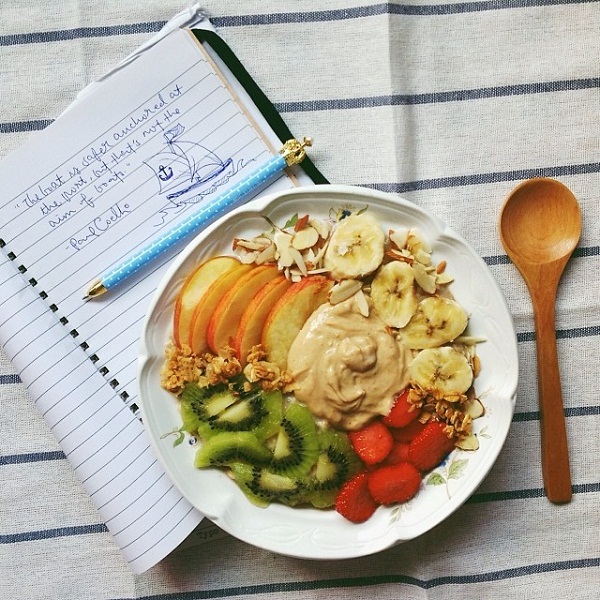 "The boat is safer anchored at
the port, but that's not the
aim of boats."
-Paul Coelho